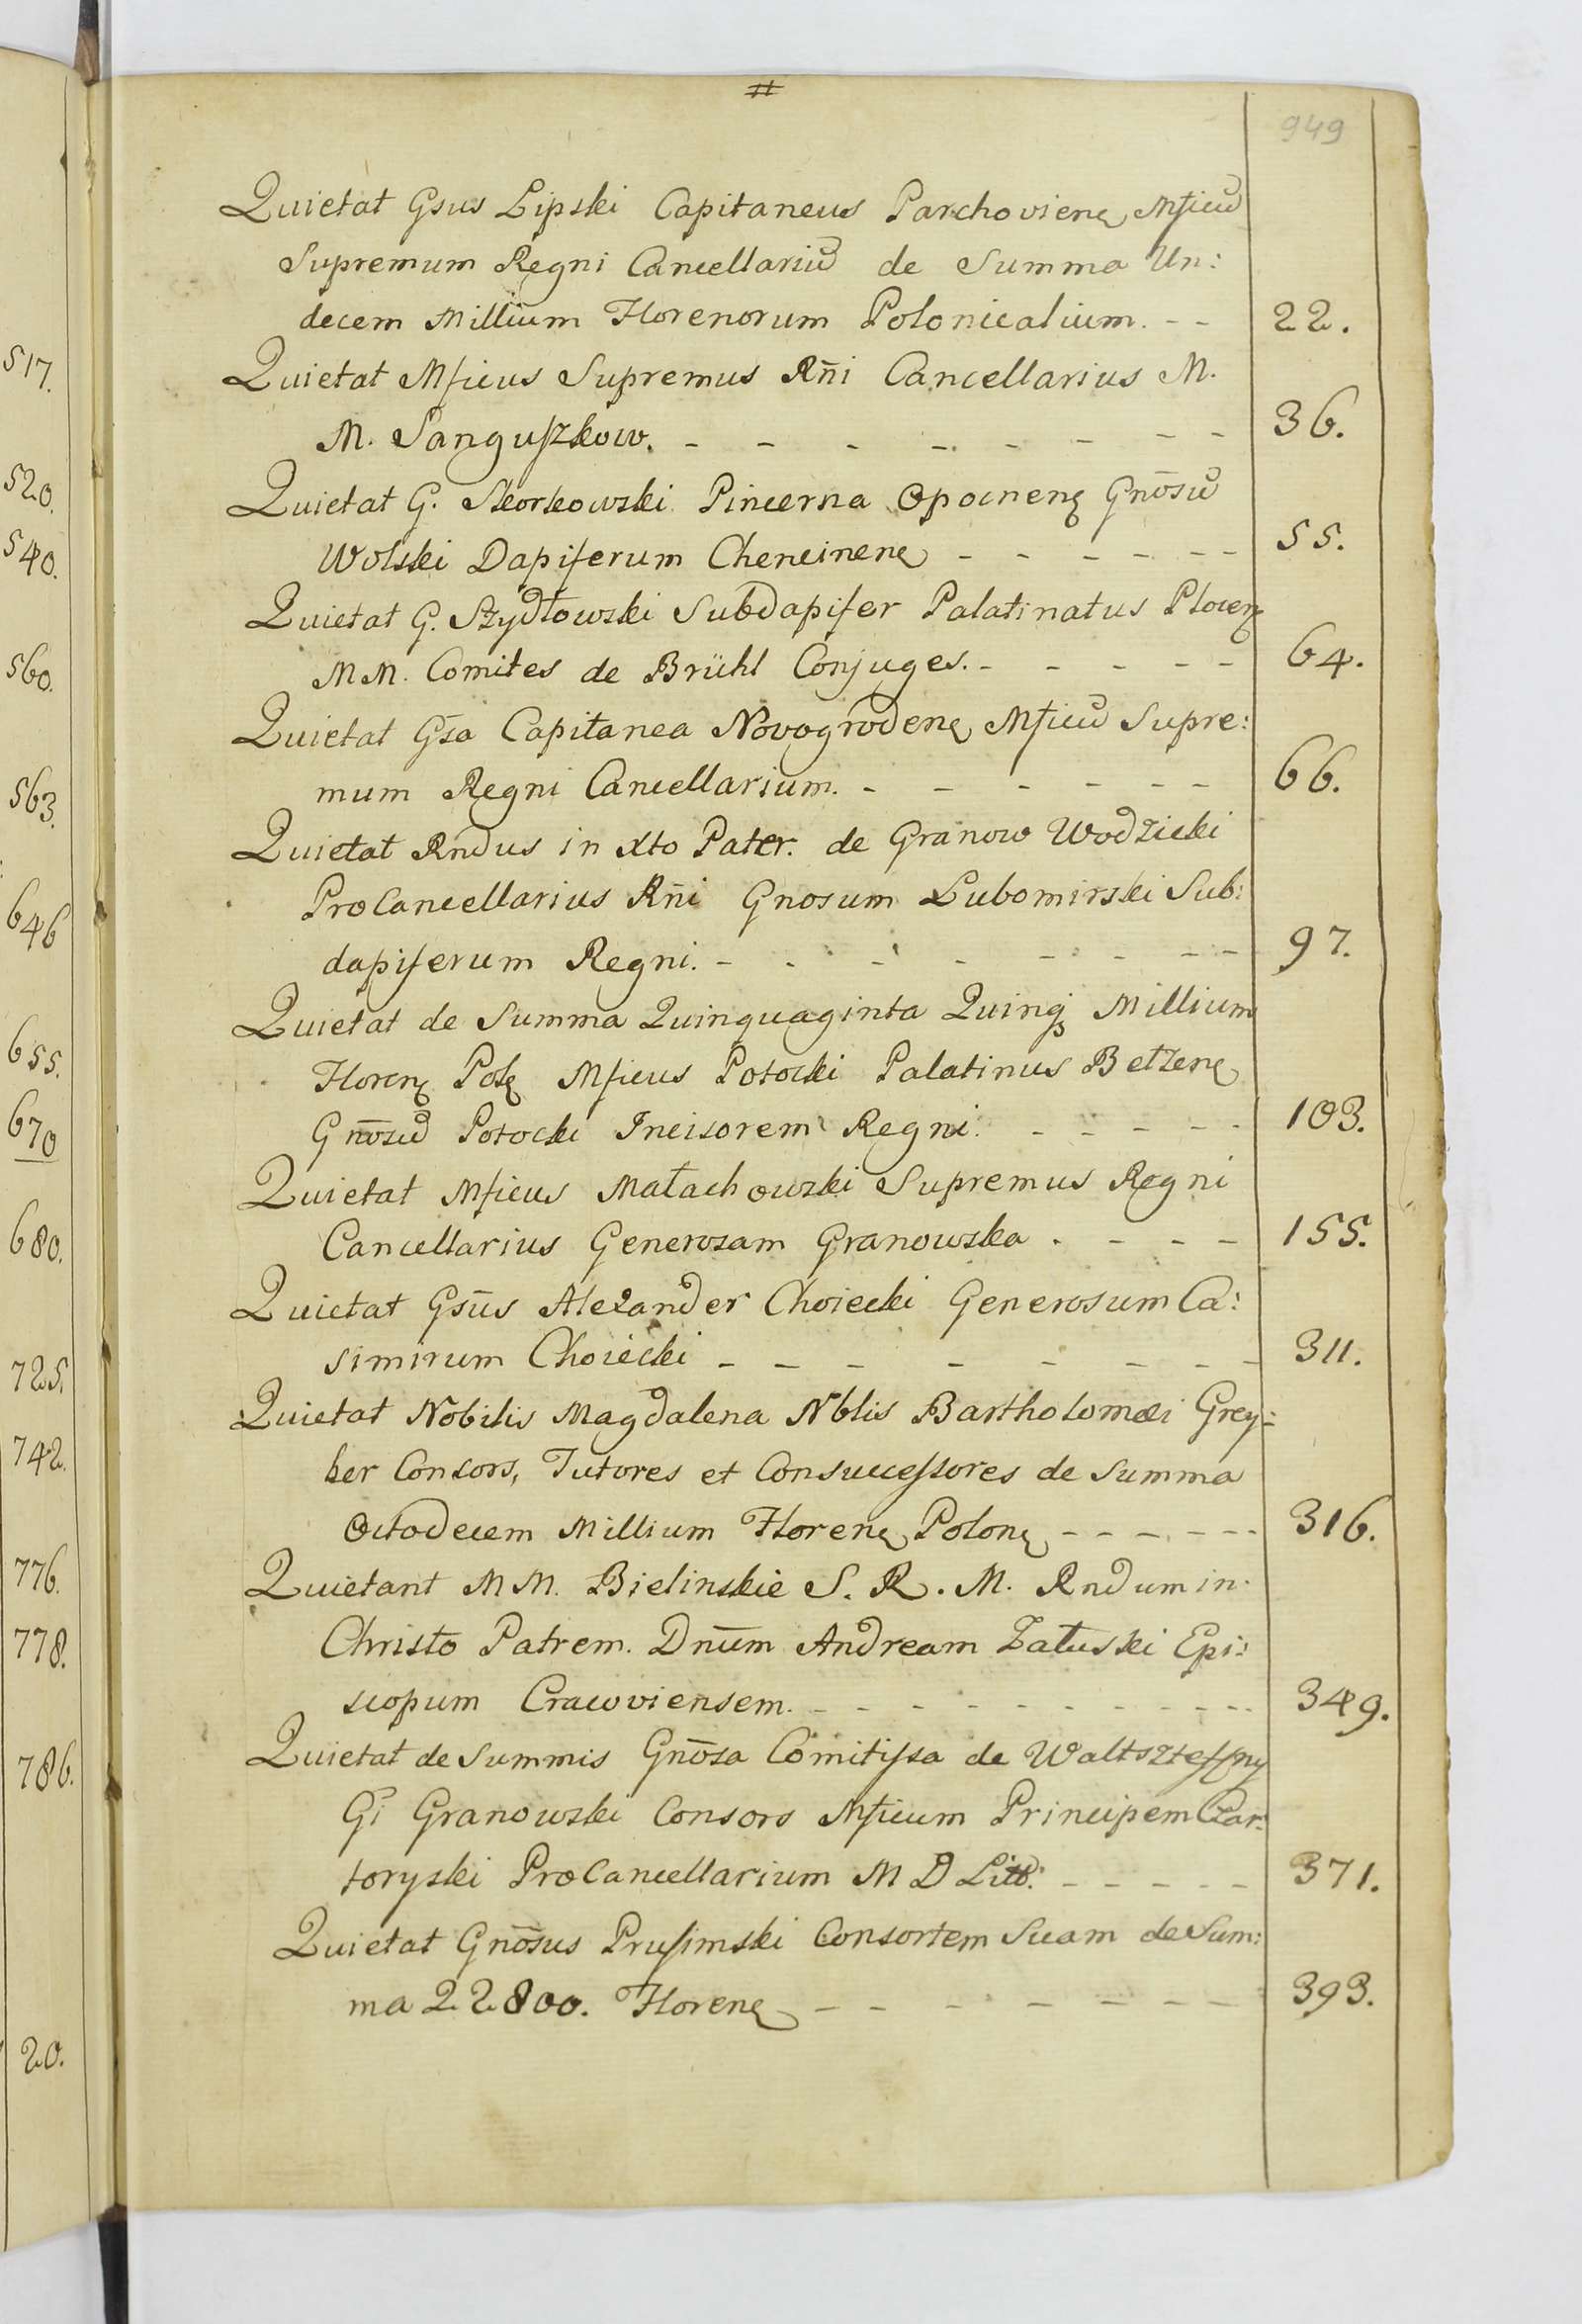 517.
520.
540.
560.
563.
646
655.
670
680.
725.
742.
776.
778.
786.
20.
#
949
Quietat Gsus Lipski Capitaneus Parchovienę Mficū
Supremum Regni Cancellariū de Summa Un:
decem Millium Florenorum Polonicalium. - - 22.
Quietat Mficus Supremus Rñi Cancellarius M.
M. Sanguszkow. - - - - - - - - 36.
Quietat G. Skorkowski Pincerna Opocnenę Gnōsū
Wolski Dapiferum Chencinenę - - - - - - 55.
Quietat G. Szydłowski Subdapifer Palatinatus Plocenę
MM. Comites de Brühl Conjuges. - - - - - - 64.
Quietat Gsa Capitanea Novogrodenę Mficū Supre:
mum Regni Cancellarium. - - - - - - 66.
Quietat Rndus in Xto Pater. de Granow Wodzicki
ProCancellarius Rñi Gnosum Lubomirski Sub:
dapiferum Regni. - - - - - - - - 97.
Quietat de Summa Quinquaginta Quinqȝ Millium
Florenę Polę Mficus Potocki Palatinus Bełzenę
Gnōsū Potocki Incisorem Regni. - - - - - 103.
Quietat Mficus Małachowski Supremus Regni
Cancellarius Generosam Granowska . - - - - 155.
Quietat Gsūs Alexander Choiecki Generosum Ca:
simirum Choiecki - - - - - - - - 311.
Quietat Nobilis Magdalena Nblis Bartholomæi Grey:
ber Consors, Tutores et Consuccessores de Summa
Octodecem Millium Florenę Polonę - - - - - - 316.
Quietant MM. Bielinskie S. R. M. Rndum in
Christo Patrem. Dnūm Andream Załuski Epi:
scopum Cracoviensem. - - - - - - - - - 349.
Quietat de Summis Gnōsa Comitissa de
Gi Granowski Consors Mficum Principem Czar:
toryski ProCancellarium M D Litt: - - - - - 371.
Quietat Gnōsus Prusimski Consortem Suam de Sum:
ma 22800. Florenę - - - - - - - 393.